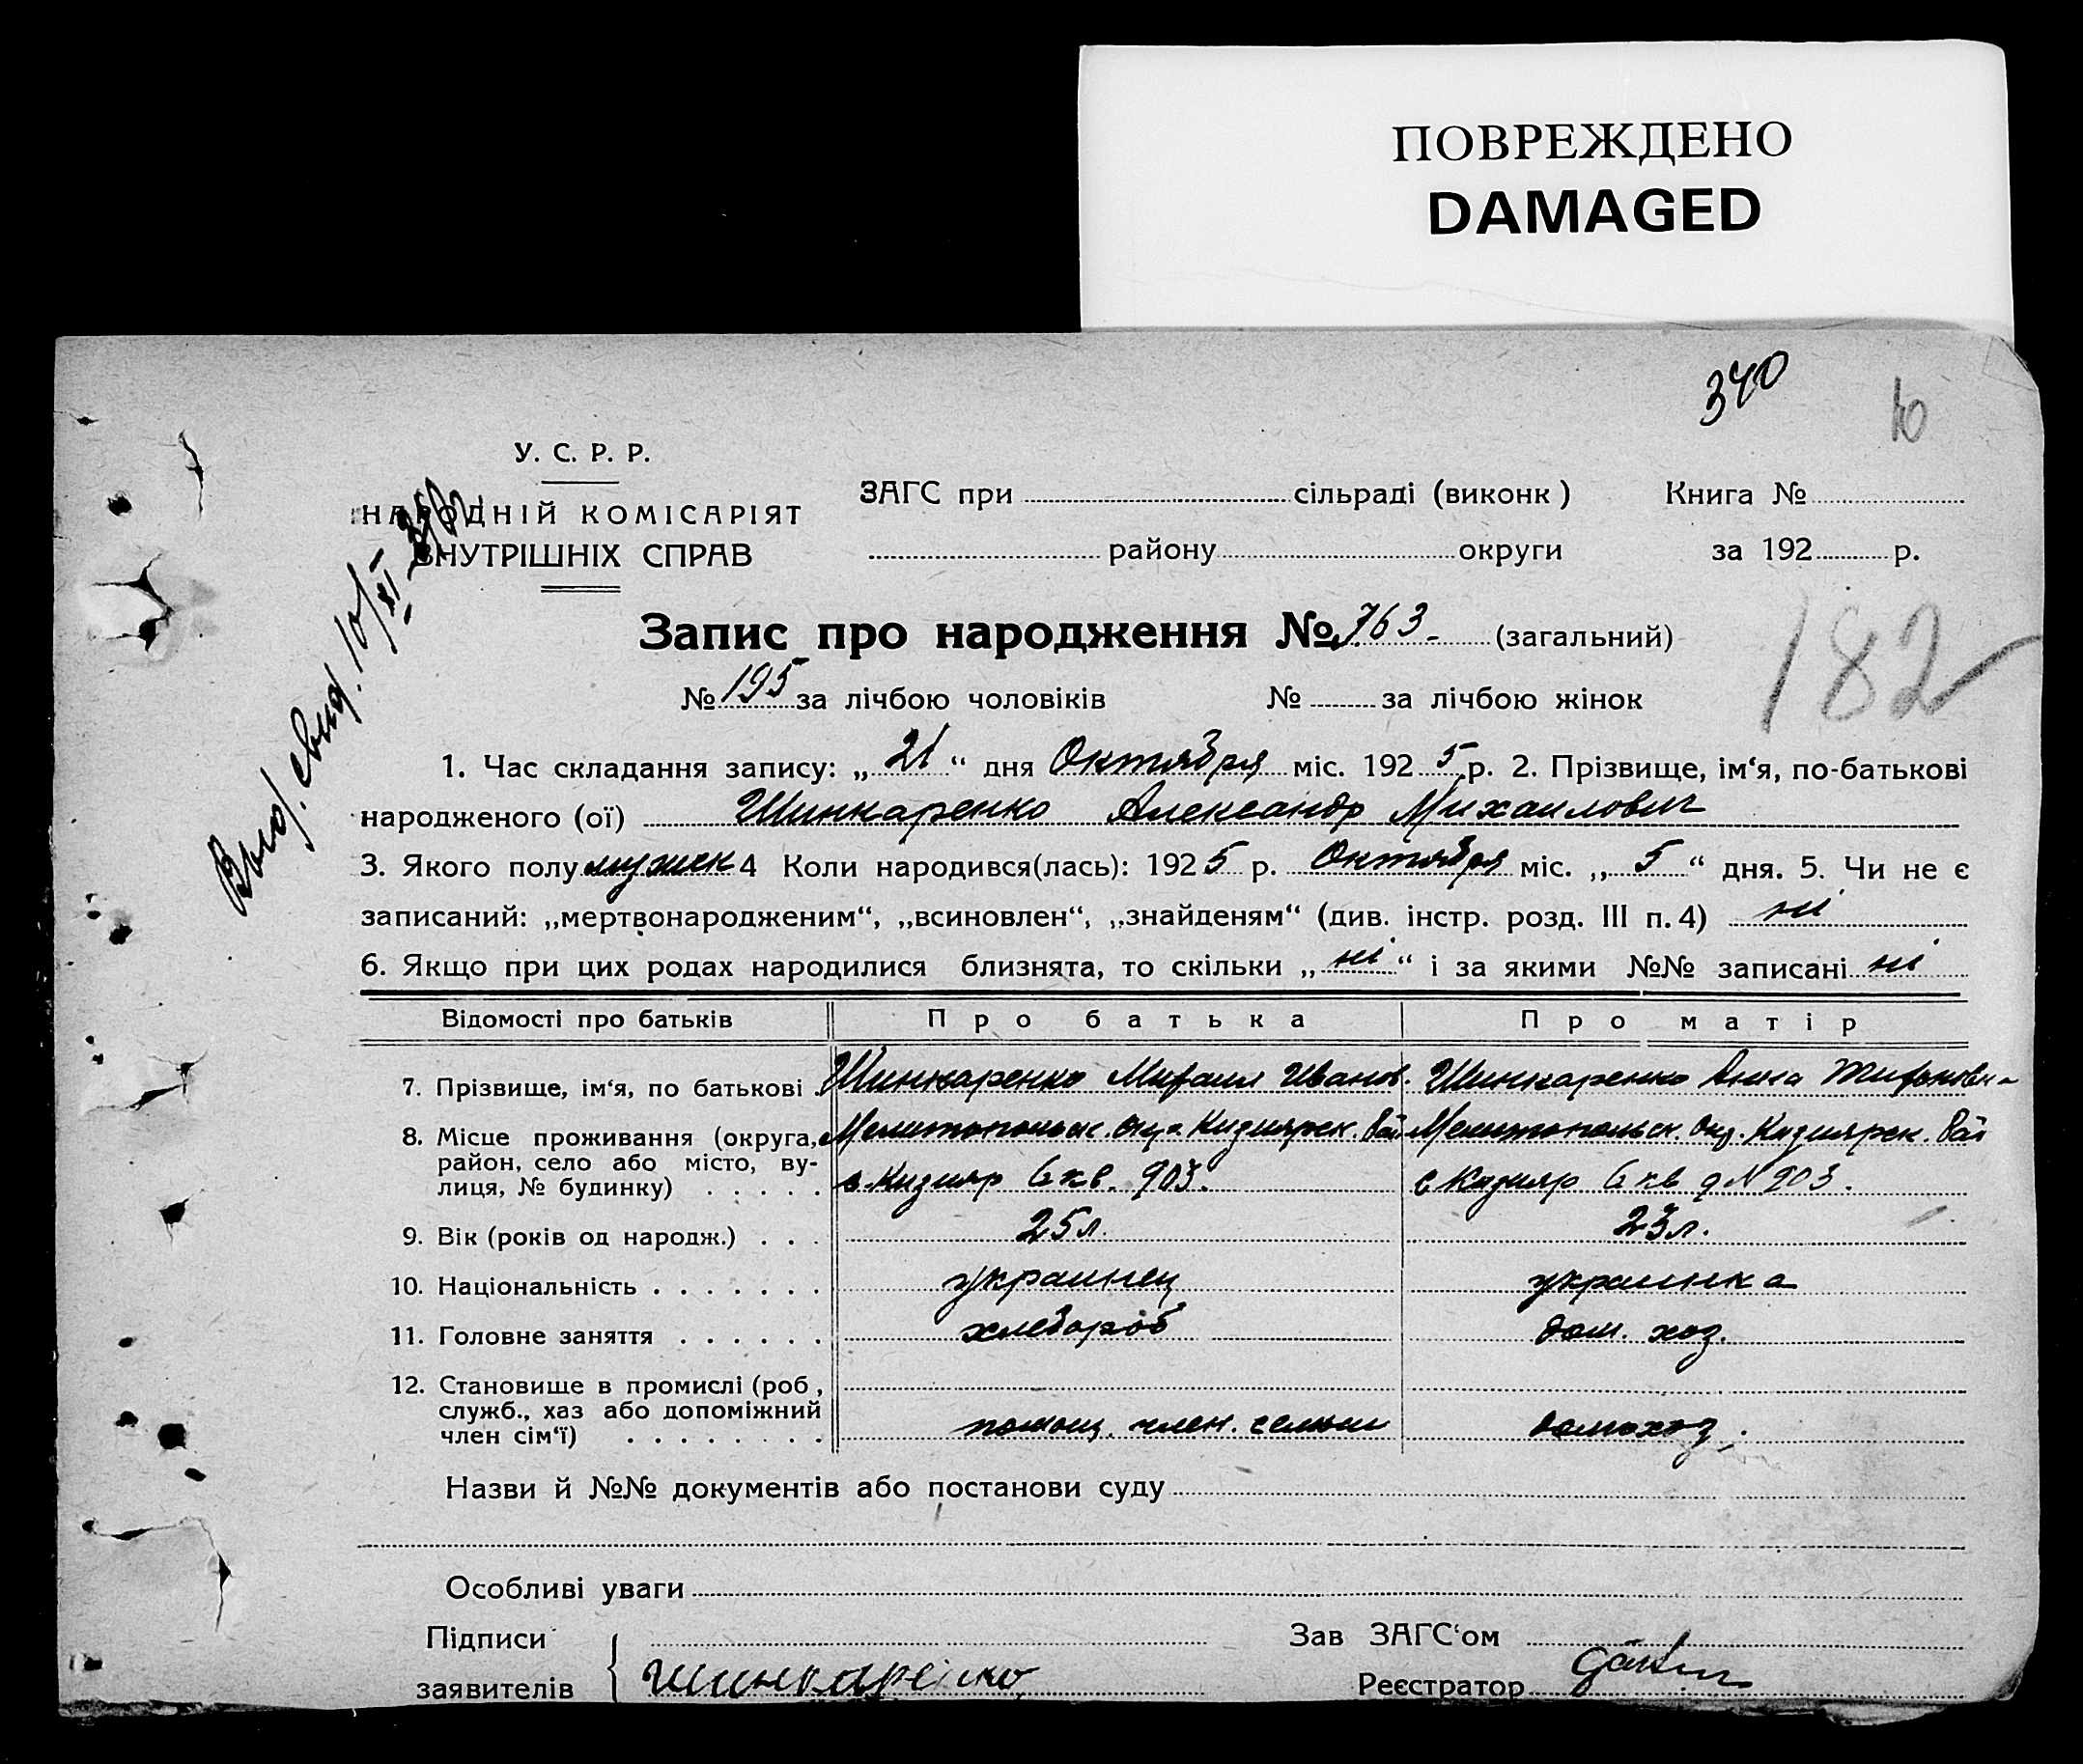 ПОВРЕЖДЕНО
DAMAGED
340
10
У. С. Р. Р.
НАРОДНІЙ КОМІСАРІЯТ
ВНУТРІШНІХ СПРАВ
ЗАГС при сільраді (виконк) Книга №
району округи за 192 р.
Запис про народження № 763 (загальний)
182
№ 195 за лічбою чоловіків № за лічбою жінок
1. Час складання запису: „21“ дня Октября міс. 1925 р. 2. Прізвище, ім‘я, по-батькові
народженого (ої) Шинкаренко Александр Михаилович
3. Якого полу мужск 4 Коли народився(лась): 1925 р. Октября міс. „5“ дня. 5. Чи не є
записаний: „мертвонародженим“, „всиновлен“, „знайденям“ (див. інстр. розд. III п. 4) ні
6. Якщо при цих родах народилися близнята, то скільки „ні“ і за якими №№ записані ні
Відомості про батьків Про батька Про матір
7. Прізвище, ім‘я, по батькові Шинкаренко Михаил Иванов. Шинкаренко Анна
8. Місце проживання (округа, Мелитопольск. Окр. Кизиярск. Рай Мелитопольск. Окр. Кизиярск. Рай
район, село або місто, ву-
лиця, № будинку) с. Кизияр 6 кв. 903. с Кизияр 6 кв д N 903.
9. Вік (років од народж.) 25 л. 23 л.
10. Національність украинец украинка
11. Головне заняття хлебороб дом. хоз.
12. Становище в промислі (роб,
служб., хаз або допоміжний
член сім‘ї) помощ. член. семьи домохоз.
Назви й №№ документів або постанови суду
Особливі уваги
Підписи Зав ЗАГС‘ом
заявителів Шинкаренко Реєстратор
Выд. свид. 10/XI